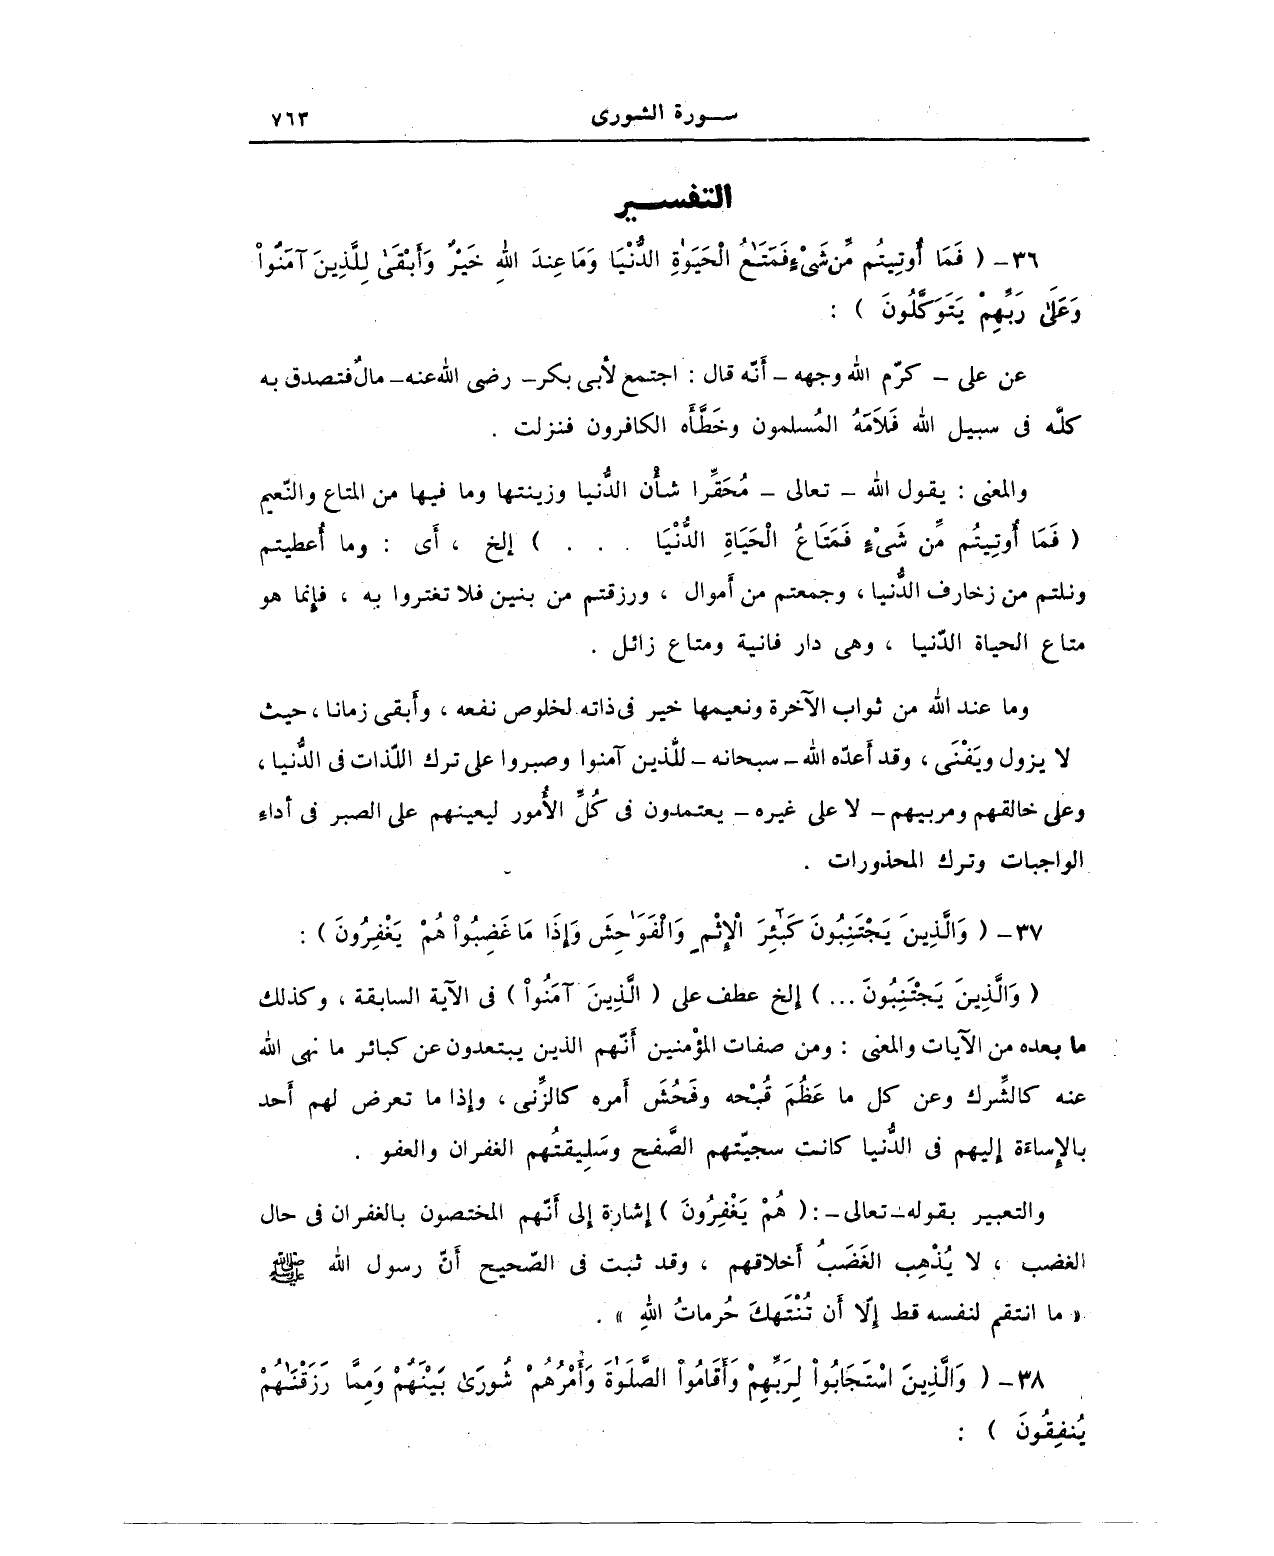 سورة الشورى ٧٦٣
التفسير
٣٦ - ( فَمَا أُوتِيتُم مِّن شَىْءٍ فَمَتَـٰعُ الْحَيَوٰةِ الدُّنْيَا وَمَا عِندَ اللهِ خَيْرٌ وَأَبْقَىٰ لِلَّذِينَ آمَنُواْ
وَعَلَىٰ رَبِّهِمْ يَتَوَكَّلُونَ ) :
عن على - كرّم الله وجهه - أَنَّه قال : اجتمع لأبى بكر - رضى الله عنه - مالٌ فتصدق به
كلَّه فى سبيل الله فَلَامَهُ المُسلمون وخَطَّأَه الكافرون فنزلت .
والمعنى : يقول الله - تعالى - مُحَقِّرا شأْن الدُّنيا وزينتها وما فيها من المتاع والنّعيم
( فَمَا أُوتِيتُم مِّن شَىْءٍ فَمَتَاعُ الْحَيَاةِ الدُّنْيَا . . . ) إلخ ، أى : وما أُعطيتم
ونلتم من زخارف الدُّنيا ، وجمعتم من أموال ، ورزقتم من بنين فلا تغتروا به ، فإنما هو
متاع الحياة الدّنيا ، وهى دار فانية ومتاع زائل .
وما عند الله من ثواب الآخرة ونعيمها خير فى ذاته لخلوص نفعه ، وأَبقى زمانا ، حيث
لا يزول ويَفْنَى ، وقد أَعدّه الله - سبحانه - للَّذين آمنوا وصبروا على ترك اللّذات فى الدُّنيا ،
وعلى خالقهم ومربيهم - لا على غيره - يعتمدون فى كُلِّ الأُمور ليعينهم على الصبر فى أداءِ
الواجبات وترك المحذورات .
٣٧ - ( وَالَّذِينَ يَجْتَنِبُونَ كَبَـٰٓئِرَ الْإِثْمِ وَالْفَوَاحِشَ وَإِذَا مَا غَضِبُواْ هُمْ يَغْفِرُونَ ) :
( وَالَّذِينَ يَجْتَنِبُونَ ... ) إلخ عطف على ( الَّذِينَ آمَنُواْ ) فى الآية السابقة ، وكذلك
ما بعده من الآيات والمعنى : ومن صفات المؤْمنين أَنَّهم الذين يبتعدون عن كبائر ما نهى الله
عنه كالشِّرك وعن كل ما عَظُمَ قُبْحه وفَحُشَ أمره كالزِّنى ، وإذا ما تعرض لهم أَحد
بالإساءَة إليهم فى الدُّنيا كانت سجيّتهم الصَّفح وسَلِيقتُهم الغفران والعفو .
والتعبير بقوله - تعالى - : ( هُمْ يَغْفِرُونَ ) إشارة إلى أَنَّهم المختصون بالغفران فى حال
الغضب ، لا يُذْهِب الغَضَبُ أَخلاقهم ، وقد ثبت فى الصّحيح أَنّ رسول الله ﷺ
« ما انتقم لنفسه قط إلَّا أَن تُنْتَهكَ حُرماتُ اللهِ » .
٣٨ - ( وَالَّذِينَ اسْتَجَابُواْ لِرَبِّهِمْ وَأَقَامُواْ الصَّلَوٰةَ وَأَمْرُهُمْ شُورَىٰ بَيْنَهُمْ وَمِمَّا رَزَقْنَـٰهُمْ
يُنفِقُونَ ) :